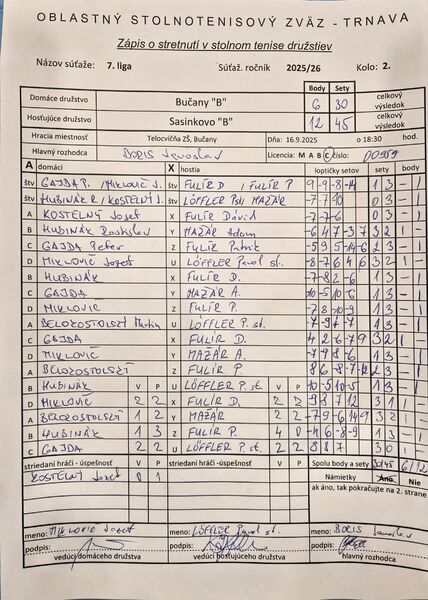 OBLASTNÝ STOLNOTENISOVÝ ZVÄZ - TRNAVA
Zápis o stretnutí v stolnom tenise družstiev
Názov súťaže: 7. liga Súťaž. ročník 2025/26 Kolo: 2.
Body Sety
Domáce družstvo Bučany "B" 6 30 celkový výsledok
Hosťujúce družstvo Sasinkovo "B" 12 45 celkový výsledok
Hracia miestnosť Telocvičňa ZŠ, Bučany Dňa: 16.9.2025 o 18:30 hod.
Hlavný rozhodca BORIS Jaroslav Licencia: M A B C číslo: 00959
A domáci X hostia loptičky setov sety body
štv GAJDA P. / MIKLOVIČ J. štv FULÍR D / FULÍR P 9 -9 -8 -14 1 3 - 1
štv HUBINÁK R / KOSTELNÝ J. štv LÖFFLER MAZÁR -7 -7 -10 0 3 - 1
A KOSTELNÝ Jozef X FULÍR Dávid -7 -7 -6 0 3 - 1
B HUBINÁK Rastislav Y MAZÁR Adam 3 2 1 -
C GAJDA Peter Z FULÍR Patrik - 1
D MIKLOVIČ Jozef U LÖFFLER Pavol st. 3 2 1 -
B HUBINÁK X FULÍR D. -7 8 -2 -6 1 3 - 1
C GAJDA Y MAZÁR A. 1 3 - 1
D MIKLOVIČ Z FULÍR P. 1 3 - 1
A BELOZOSTOLSZÝ Martin U LÖFFLER P. st. 1 3 - 1
C GAJDA X FULÍR D. 3 2 1 -
D MIKLOVIČ Y MAZÁR A. 1 3 - 1
A BELOZOSTOLSZÝ Z FULÍR P. 2 3 - 1
B HUBINÁK V P U LÖFFLER P. st V P 1 3 - 1
D MIKLOVIČ 2 2 X FULÍR D. 2 2 3 1 1 -
A BELOZOSTOLSZÝ 1 2 Y MAZÁR 2 2 3 2 1 -
B HUBINÁK 1 3 Z FULÍR P. 4 0 1 3 - 1
C GAJDA 2 2 U LÖFFLER P. st. 2 2 8 8 7 3 0 1 -
striedaní hráči - úspešnosť V P striedaní hráči - úspešnosť V P Spolu body a sety 30/45 6/12
KOSTELNÝ Jozef 0 1 Námietky Áno Nie
ak áno, tak pokračujte na 2. strane
meno: MIKLOVIČ Jozef meno: LÖFFLER Pavol st. meno: BORIS Jaroslav
podpis: podpis: podpis:
vedúci domáceho družstva vedúci hosťujúceho družstva hlavný rozhodca